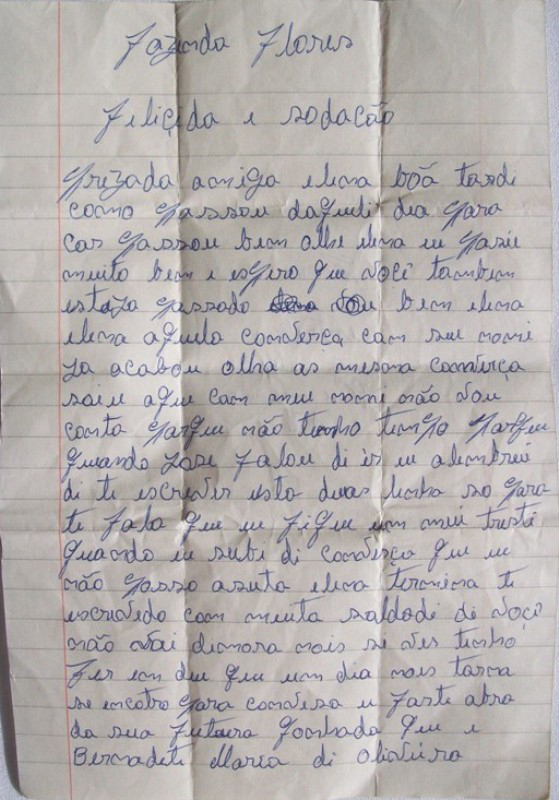 Fazenda Flores
Feliçida e sodacão
Prezada amiga elena bôa tardi
como passou daqueli dia para
car passou bem olhe elena eu pasei
muito bem e espero que voçê tambem
estaja passado bem elena
elena aquela converça com seu nomi
ja acabou olha as mesma converça
saiu aqui com meu nomi não vou
conta parque não tenho tempo parque
quando jose falou di ir eu alembrei
di te escrever esta duas linha so para
te fala que eu fiquei um mui tristi
quando eu subi di converça que eu
não posso asuta elena termina te
escrevedo com muita saldodi di voçê
não vai dimora mais si ver tenho
fer em deu que um dia nois tarna
se encotro para conversa u farte abra
da sua futura qonhada que e
Bernadeti Maria di oliveira